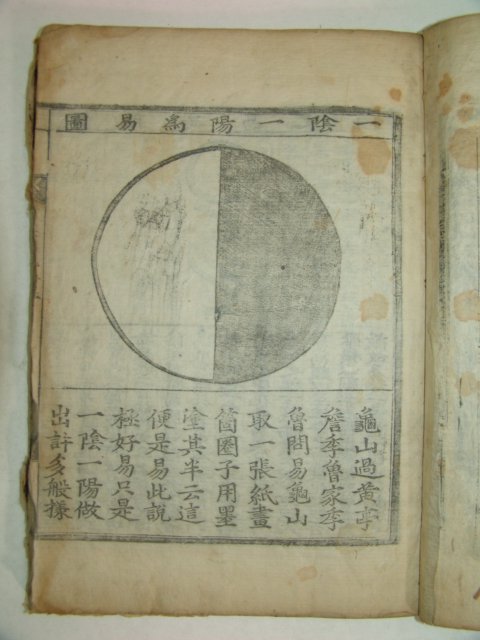 一陰一陽為易圖
龜山過黄亭
詹季魯家季
魯問易龜山
取一張紙畫
箇圈子用墨
塗其半云這
便是易此說
極好易只是
一陰一陽做
出許多般樣